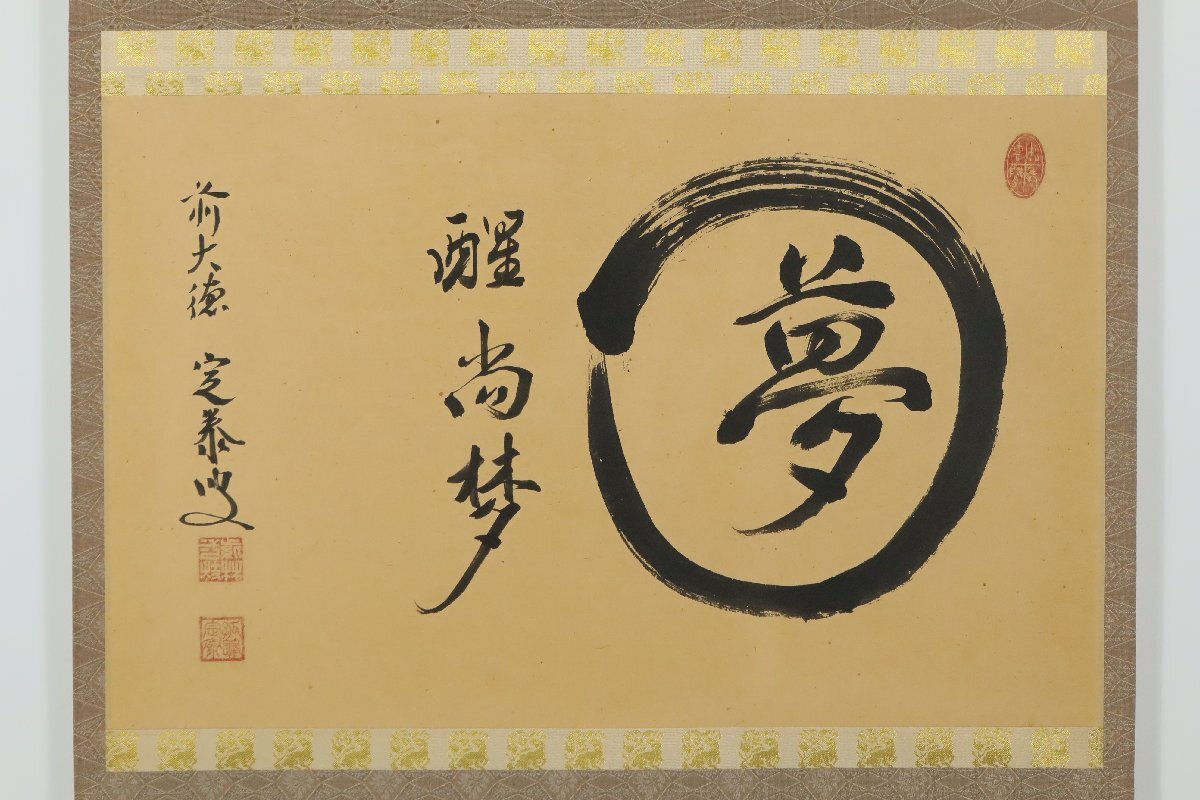 夢
醒尚梦
前大徳 定泰叟